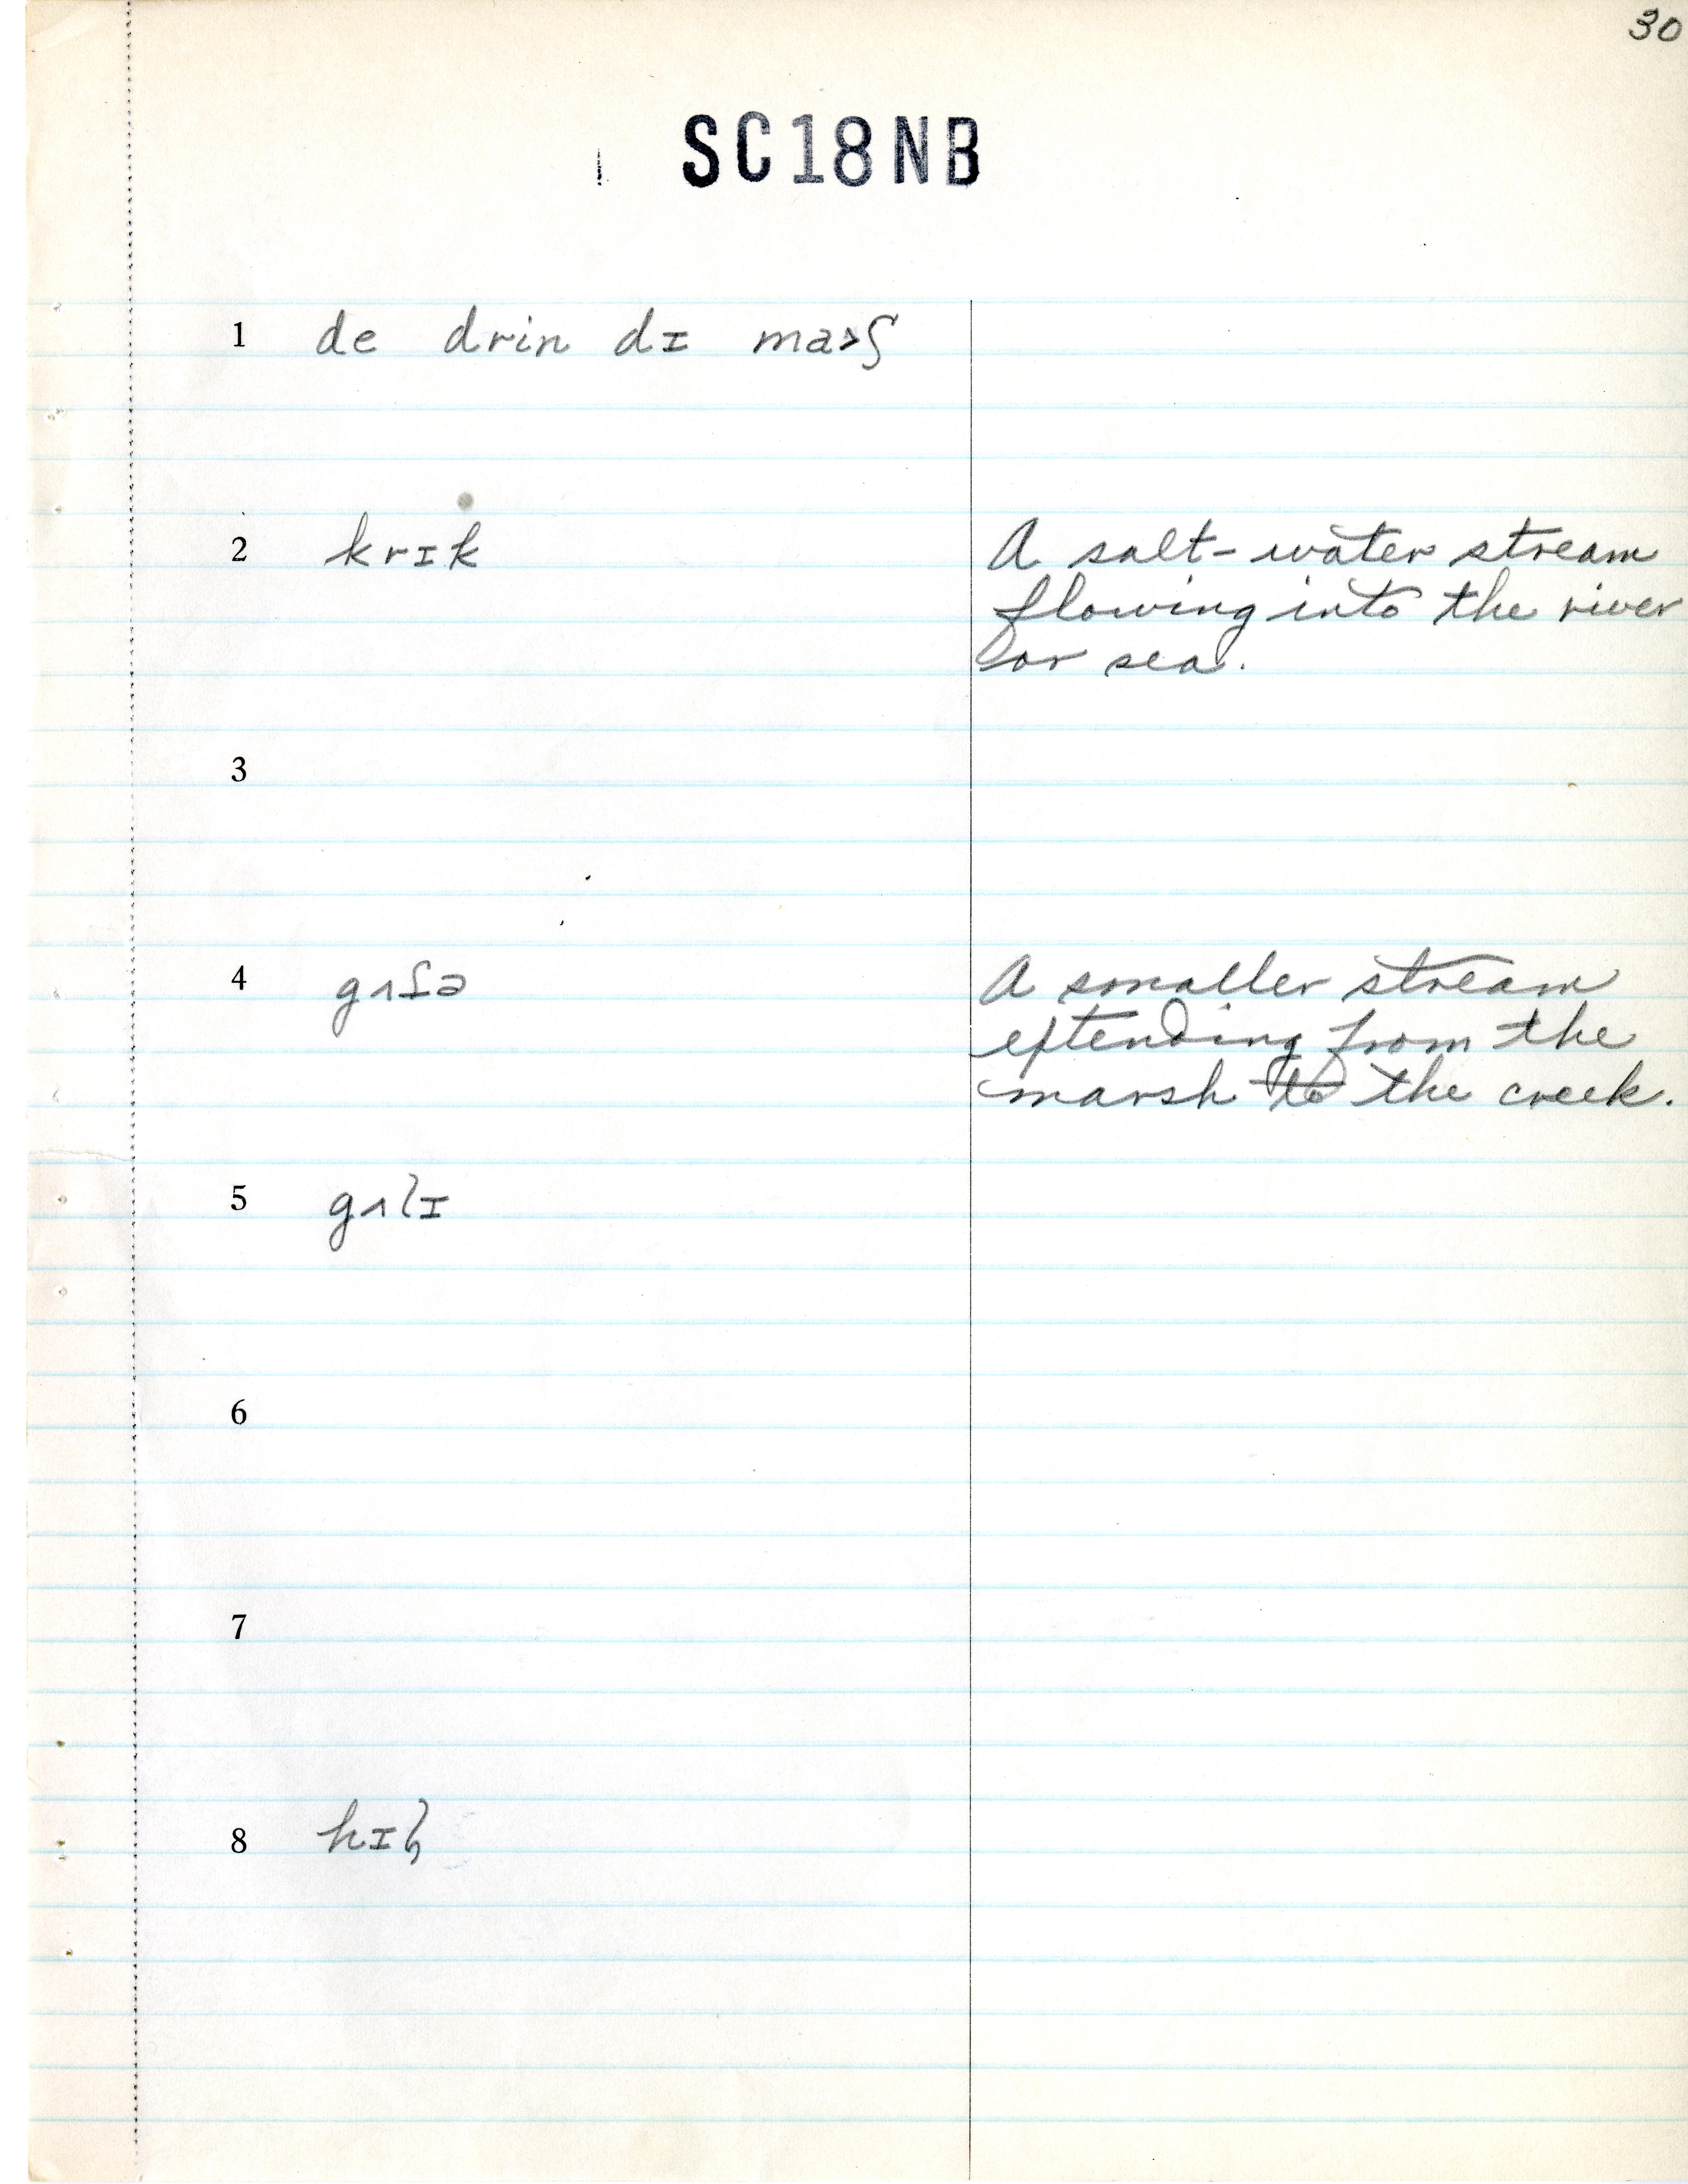 30
SC18NB
1 de drin dɪ ma>ʃ
2 krɪk
A salt-water stream
flowing into the river
or sea.
3
4 gʌtə
A smaller stream
extending from the
marsh to the creek.
5 gʌlɪ
6
7
8